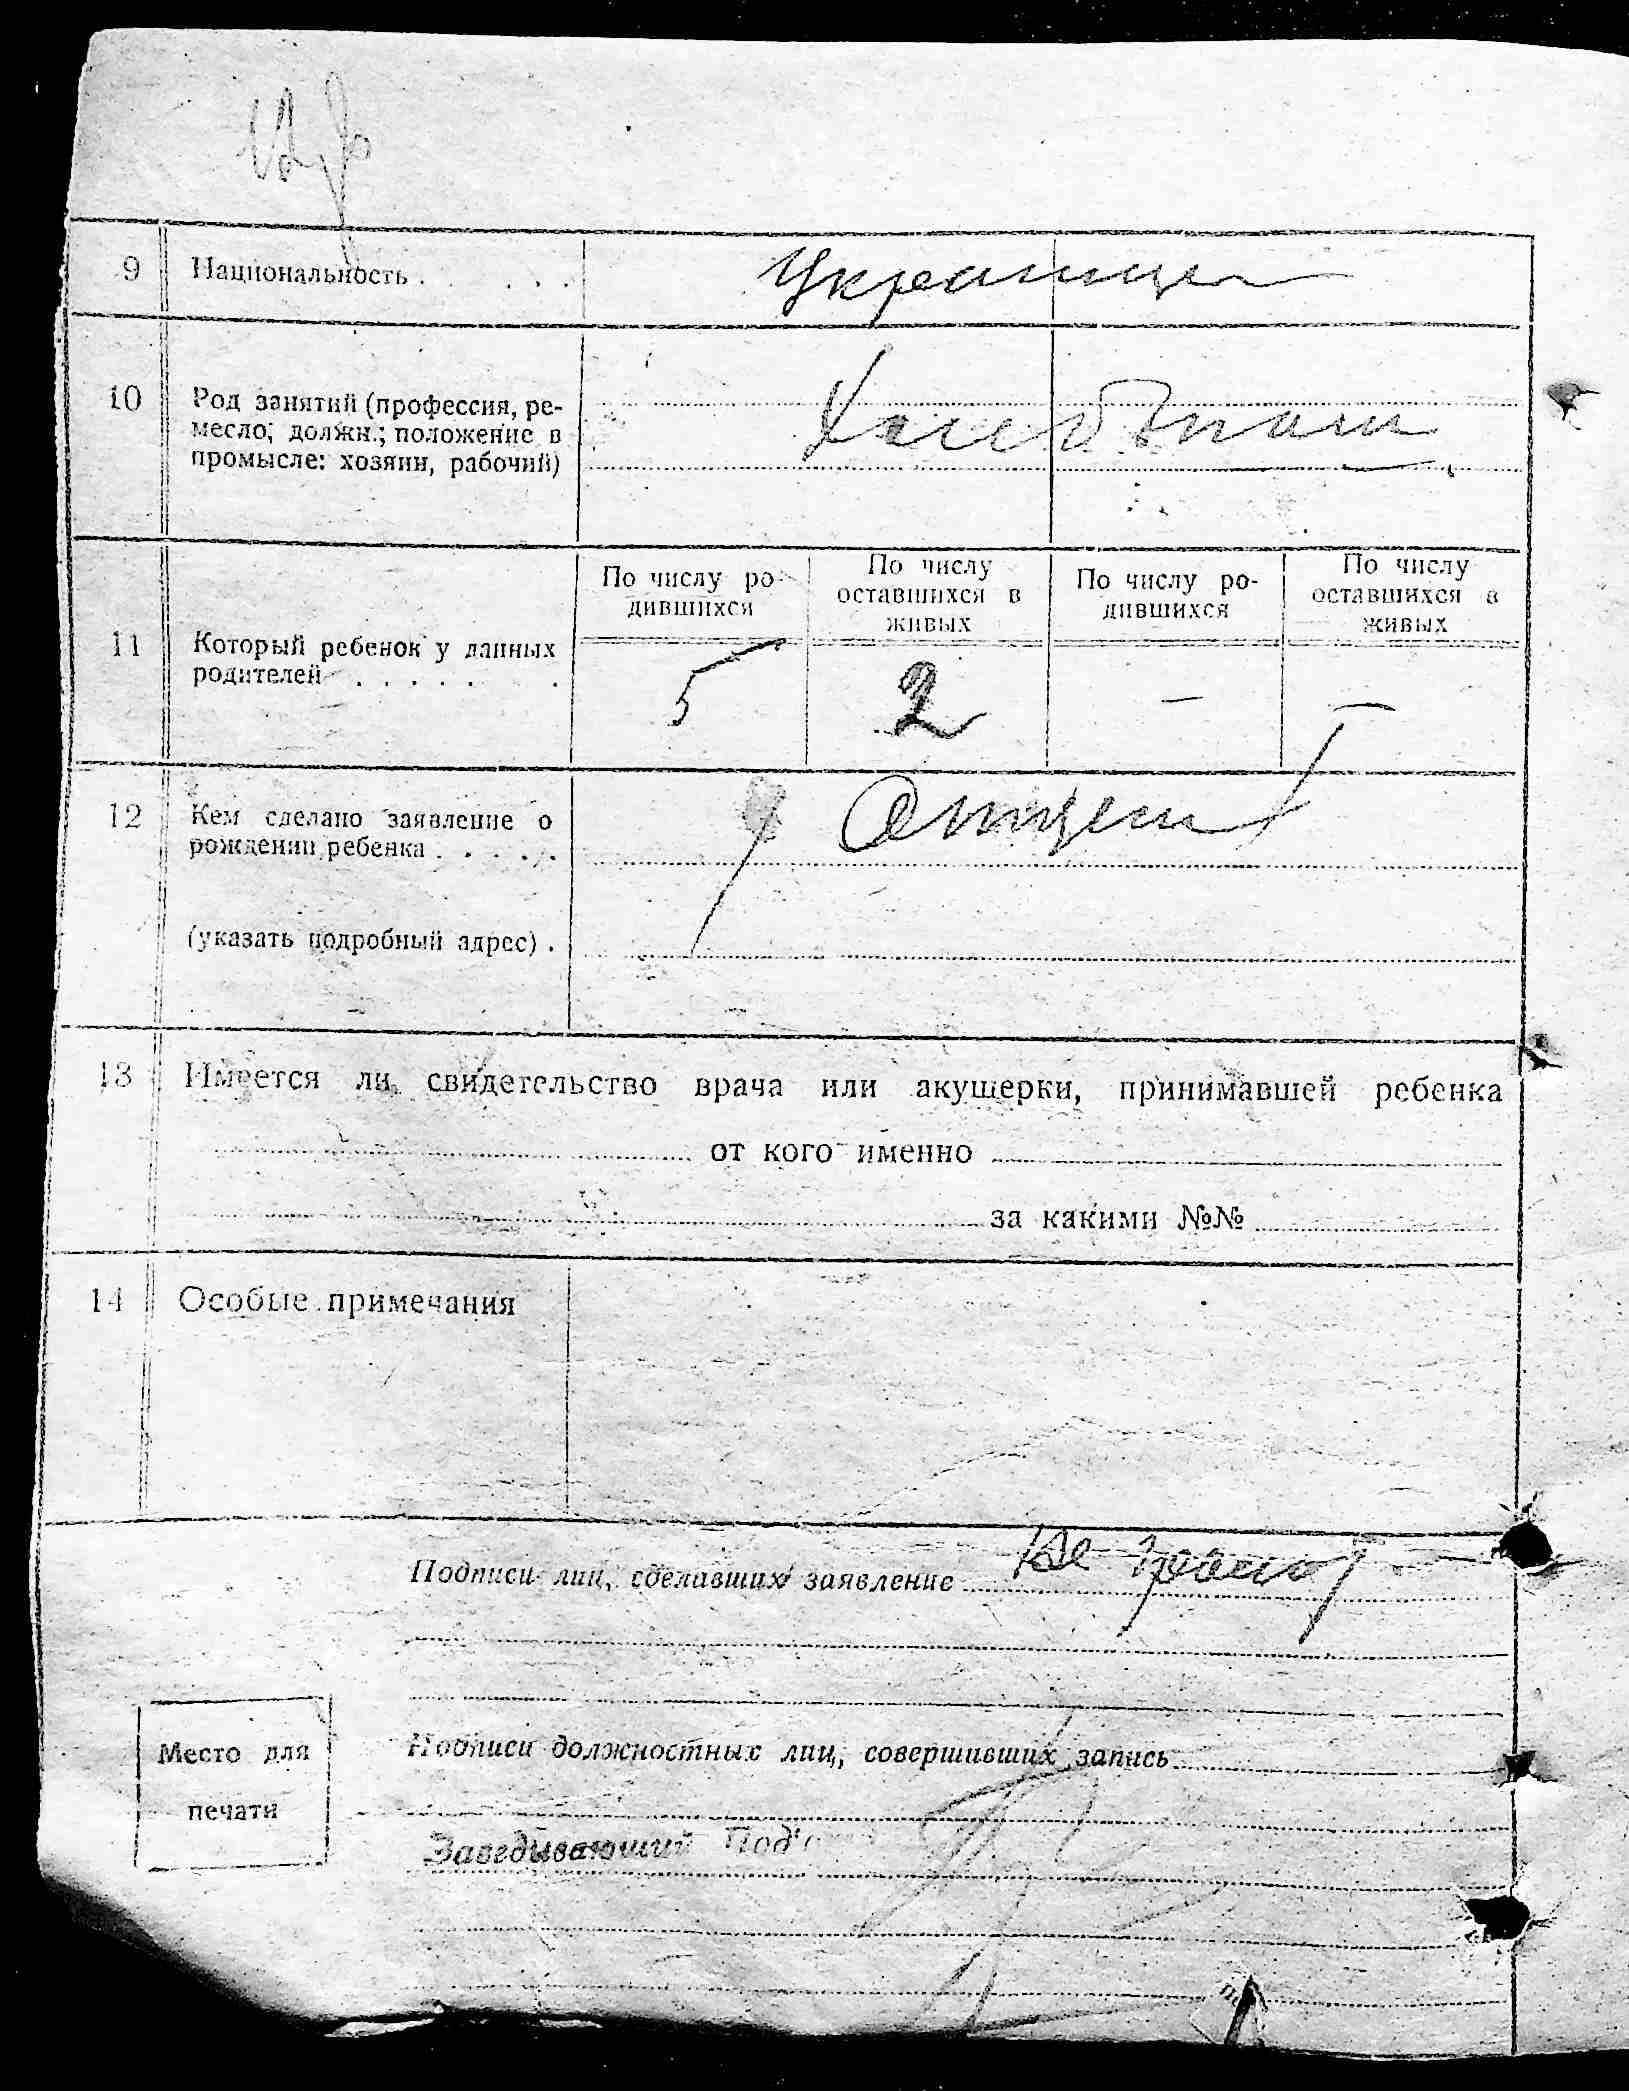 9 Национальность . . . . . Украинцы
10 Род занятий (профессия, ре-
месло; должн.; положение в
промысле: хозяин, рабочий)
Хлебопаш
11 Который ребенок у данных
родителей . . . . . .
По числу ро-
дившихся
По числу
оставшихся в
живых
По числу ро-
дившихся
По числу
оставшихся в
живых
5 2 — —
12 Кем сделано заявление о
рождении ребенка . . . . .
Отцем
(указать подробный адрес) .
13 Имеется ли свидетельство врача или акушерки, принимавшей ребенка
от кого именно
за какими №№
14 Особые примечания
Подписи лиц, сделавших заявление Не грамот
Место для
печати
Подписи должностных лиц, совершивших запись
Заведывающий Под'о